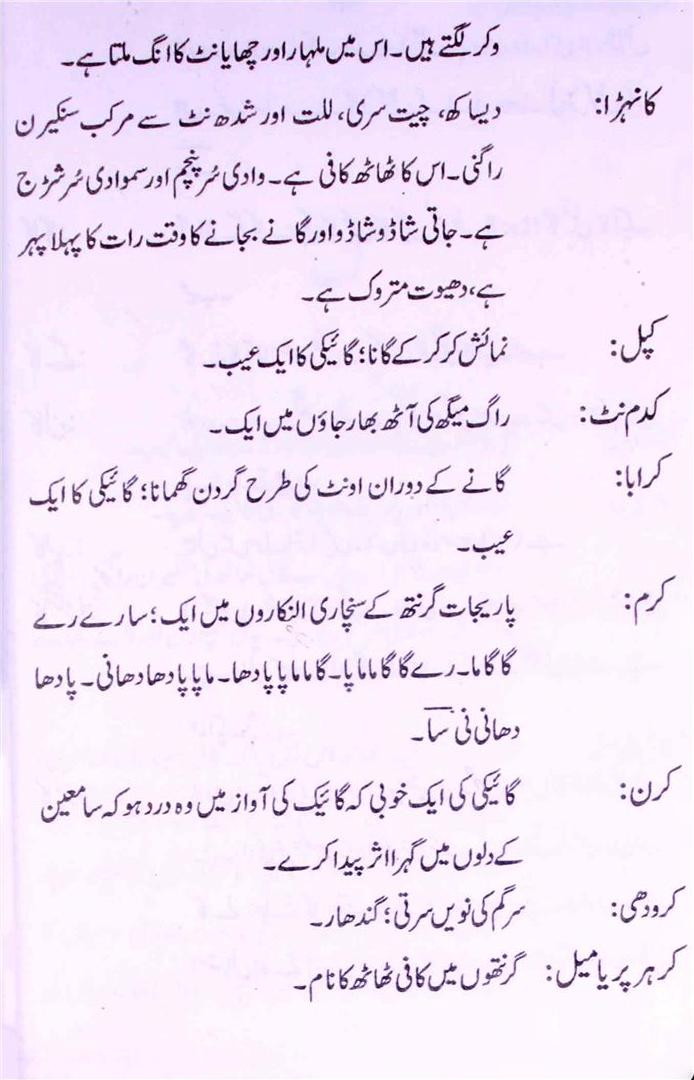 وکر لگتے ہیں۔ اس میں ملہار اور چھایانٹ کا انگ ملتا ہے۔
کانہڑا: دیساکھ، چیت سری، للت اور شدھ نٹ سے مرکب سنکیرن
راگنی۔ اس کا ٹھاٹھ کافی ہے۔ وادی سُر پنچم اور سموادی سُر شڑج
ہے۔ جاتی شاڈو شاڈو اور گانے بجانے کا وقت رات کا پہلا پہر
ہے، دھیوت متروک ہے۔
کپل: نمائش کر کر کے گانا؛ گائیکی کا ایک عیب۔
کدم نٹ: راگ میگھ کی آٹھ بھارجاؤں میں ایک۔
کرابا: گانے کے دوران اونٹ کی طرح گردن گھمانا؛ گائیکی کا ایک
عیب۔
کرم: پاریجات گرنتھ کے سنچاری النکاروں میں ایک؛ سا رے رے
گا گا ما۔ رے گا گا ما ما پا۔ گا ما ما پا پا دھا۔ ما پا پا دھا دھا نی۔ پا دھا
دھا نی نی سا۔
کرن: گائیکی کی ایک خوبی کہ گائیک کی آواز میں وہ درد ہو کہ سامعین
کے دلوں میں گہرا اثر پیدا کرے۔
کرودھی: سرگم کی نویں سرتی؛ گندھار۔
کرہر پریا میل: گرنتھوں میں کافی ٹھاٹھ کا نام۔